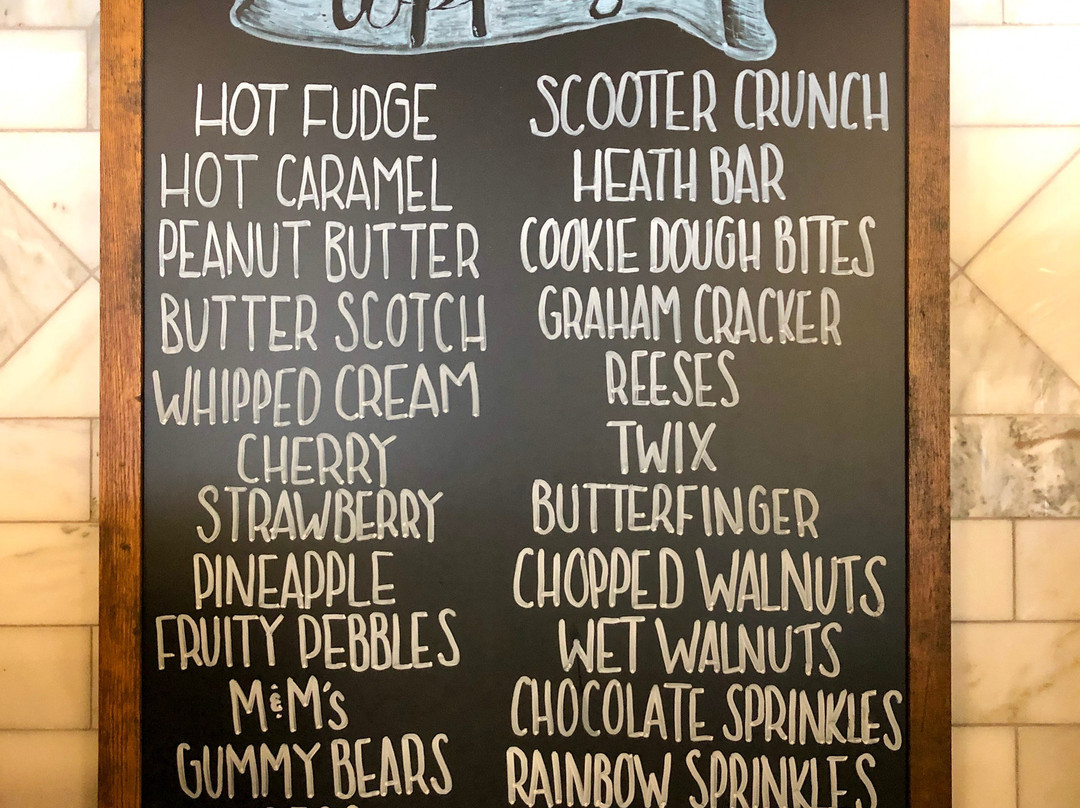 HOT FUDGE
HOT CARAMEL
PEANUT BUTTER
BUTTER SCOTCH
WHIPPED CREAM
CHERRY
STRAWBERRY
PINEAPPLE
FRUITY PEBBLES
M&M's
GUMMY BEARS
SCOOTER CRUNCH
HEATH BAR
COOKIE DOUGH BITES
GRAHAM CRACKER
REESES
TWIX
BUTTERFINGER
CHOPPED WALNUTS
WET WALNUTS
CHOCOLATE SPRINKLES
RAINBOW SPRINKLES